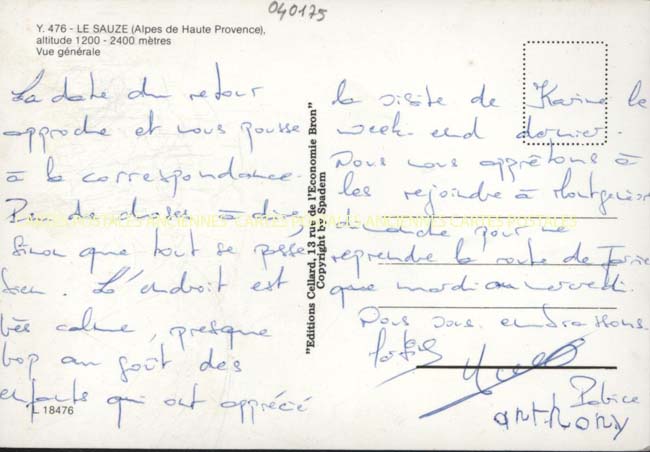 040175
Y. 476 - LE SAUZE (Alpes de Haute Provence),
altitude 1200 - 2400 mètres
Vue générale
La date du retour
approche et nous pousse
à la correspondance.
Peu de choses à dire,
sinon que tout se passe
bien. L'endroit est
très calme, presque
trop au goût des
enfants qui ont apprécié
L 18476
"Editions Cellard, 13 rue de l'Economie Bron"
Copyright by Spadem
la visite de Karine le
week-end dernier.
Nous nous apprêtons à
les rejoindre à Montgenèvre
pour ne
reprendre la route de
que mardi ou mercredi.
Nous vous embrassons.
Patrice
anthony
CARTES POSTALES ANCIENNES